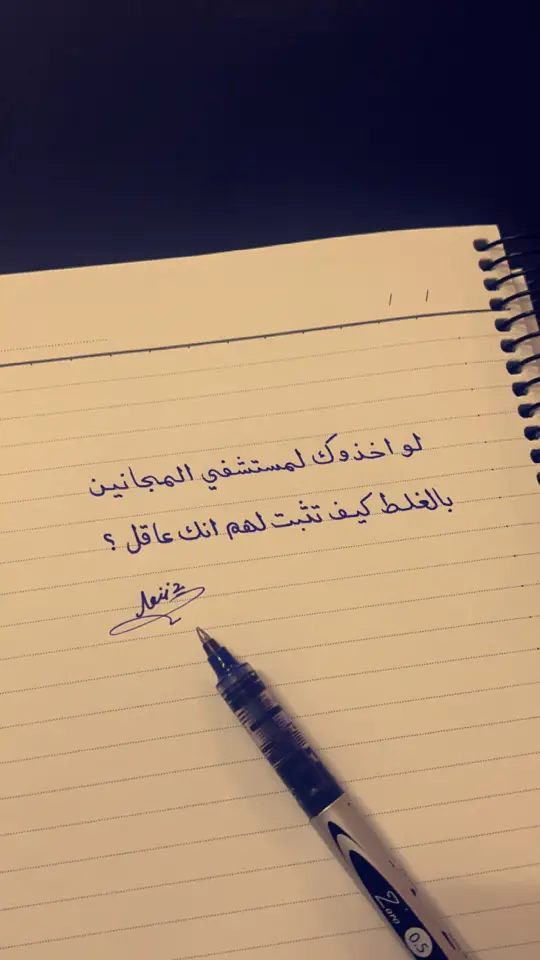 / /
لو اخذوك لمستشفي المجانين
بالغلط كيف تثبت لهم انك عاقل ؟
Zoro
0.5